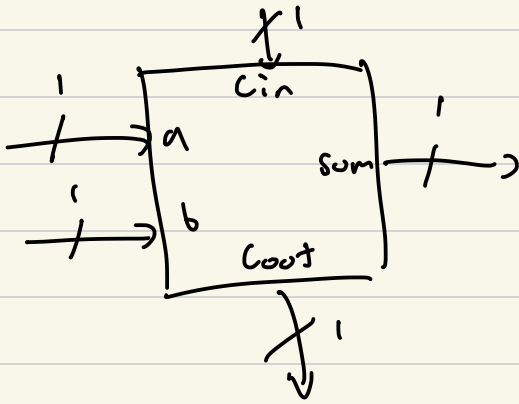 1
Cin
1
a
1
sum
1
b
Cout
1